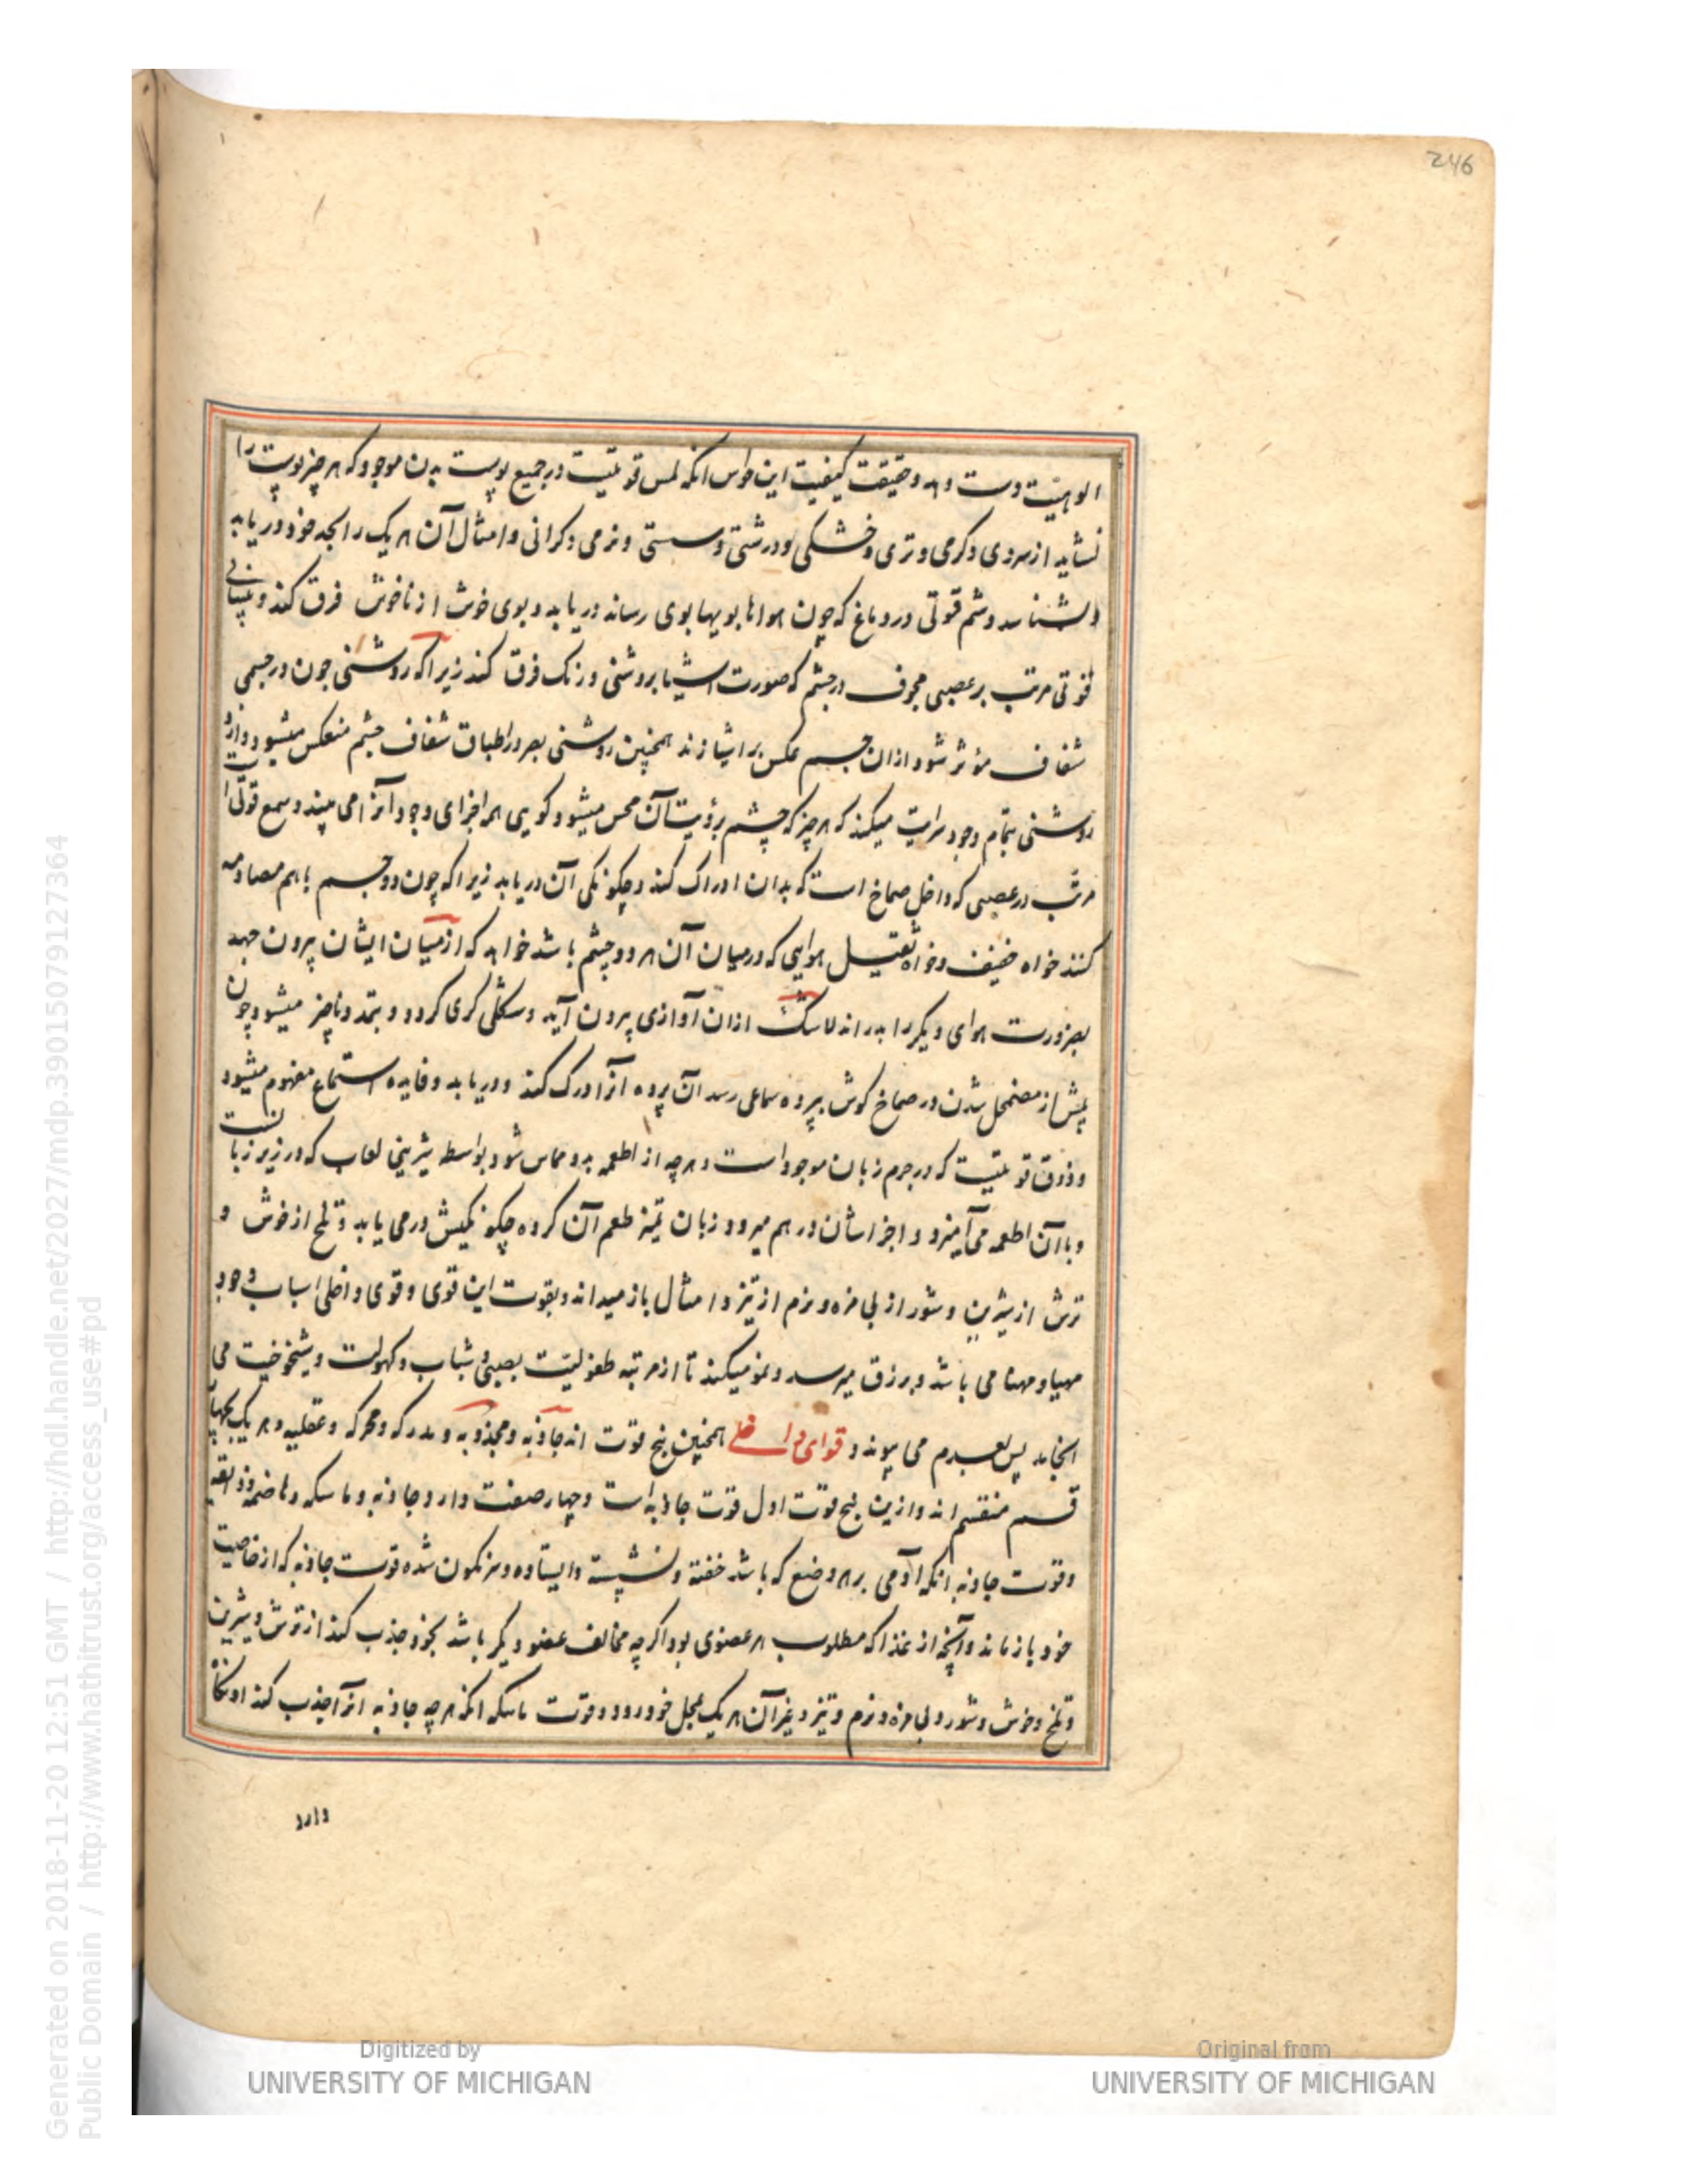 246
الوهیت دست دهد و حقیقت کیفیت این حواس انکه لمس قوتیست در جمیع پوست بدن موجود که هر چیز پوست را
نشاید از سردی و کرمی و تری و خشکی و درشتی و سستی و نرمی و کرانی و امثال آن هر یک را بجد خود دریابد
و بشناسد و شم قوتی در دماغ که چون هوا بویها بوی رساند دریابد و بوی خوش از ناخوش فرق کند و بینائی
قوتی مرتب بر عصبی مجوف در چشم که صورت اشیا بروشنی و رنک فرق کند زیرا که روشنی چون در جسمی
شفاف مؤثر شود ازان جسم عکس بر اشیا زند همچنین روشنی بصر در اطباق شفاف چشم منعکس میشود و ازو
روشنی بتمام وجود سرایت میکند که هر چیز که چشم برؤیت آن محس میشود کویی همه اجزای وجود آنرا می بیند و سمع قوتی است
مرتب در عصبی که داخل صماخ است که بدان ادراک کند و چکونکی آن دریابد زیرا که چون دو جسم باهم مصادمه
کنند خواه خفیف و خواه ثقیل هوایی که درمیان آن هر دو جسم باشد خواهد که از میان ایشان بیرون جهد
بضرورت هوای دیکر را بدراند لاشک ازان آوازی بیرون آید و بشکلی کری کردد و بتمدد ناچیز میشود و چون
پیش از مضمحل شدن در صماخ کوش بپرده سماعی رسد آن پرده آنرا درک کند و دریابد و فایده استماع مفهوم میشود
و ذوق قوتیست که در جرم زبان موجود است و هر چه از اطعمه بدو مماس شود بواسطه شیرینی لعاب که در زیر زبانست
و باآن اطعمه می آمیزد و اجزاشان در هم میرود و زبان تمیز طعم آن کرده چکونکیش درمی یابد و تلخ از خوش و
ترش از شیرین و شور از بی مزه و نرم از تیز و امثال باز میداند و بقوت این قوی و قوی داخلی اسباب وجود
مهیا و مهنا می باشد و برزق میرسد و نمو میکند تا از مرتبه طفولیت بصبی و شباب و کهولت و شیخوخیت می
انجامد پس بعدم می پیوندد و قوای داخلی همچنین پنج قوت اند جاذبه و مجذوبه و مدرکه و محرکه و عقلیه و هر یک بچهار
قسم منقسم اند و ازین پنج قوت اول قوت جاذبه است و چهار صفت دارد جاذبه و ماسکه و هاضمه و ذایقه
و قوت جاذبه انکه آدمی بر هر وضع که باشد خفته و نشسته و ایستاده و سرنکون شده قوت جاذبه که از خاصیت
خود بازنماند و آنچه از غذا که مطلوب هر عضوی بود اکر چه مخالف عضو دیکر باشد بخود جذب کند از ترش و شیرین
و تلخ و خوش و شور و بی مزه و نرم و تیز و غیر آن هر یک بمحل خود رود و قوت ماسکه انکه هر چه جاذبه آنرا جذب کند او نکاه
دارد
Generated on 2018-11-20 12:51 GMT / http://hdl.handle.net/2027/mdp.39015079127364
Public Domain / http://www.hathitrust.org/access_use#pd
Digitized by
UNIVERSITY OF MICHIGAN
Original from
UNIVERSITY OF MICHIGAN